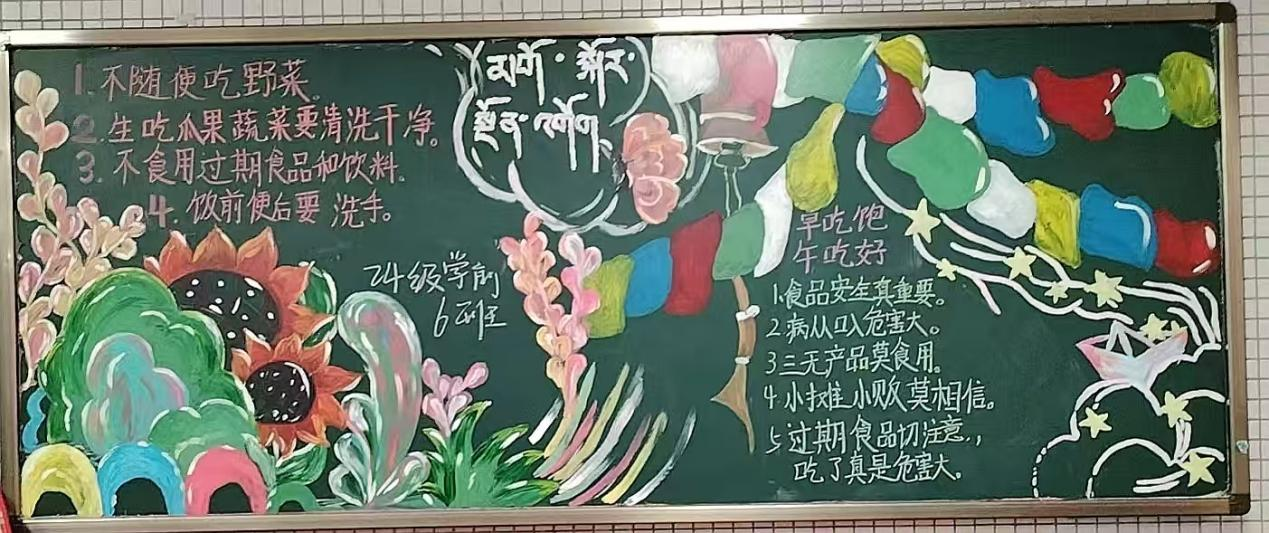 1. 不随便吃野菜。
2. 生吃瓜果蔬菜要清洗干净。
3. 不食用过期食品和饮料。
4. 饭前便后要洗手。
24级学前
6班
早吃饱
午吃好
1.食品安全真重要。
2.病从口入危害大。
3.三无产品莫食用。
4.小摊小贩莫相信。
5.过期食品切注意,
吃了真是危害大。